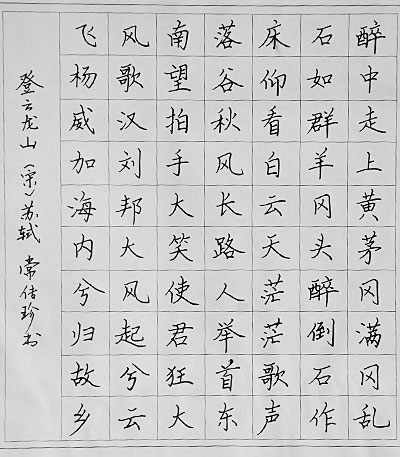 醉中走上黄茅冈满冈乱
石如群羊冈头醉倒石作
床仰看白云天茫茫歌声
落谷秋风长路人举首东
南望拍手大笑使君狂大
风歌汉刘邦大风起兮云
飞杨威加海内兮归故乡
登云龙山(宋)苏轼 常佶珍书